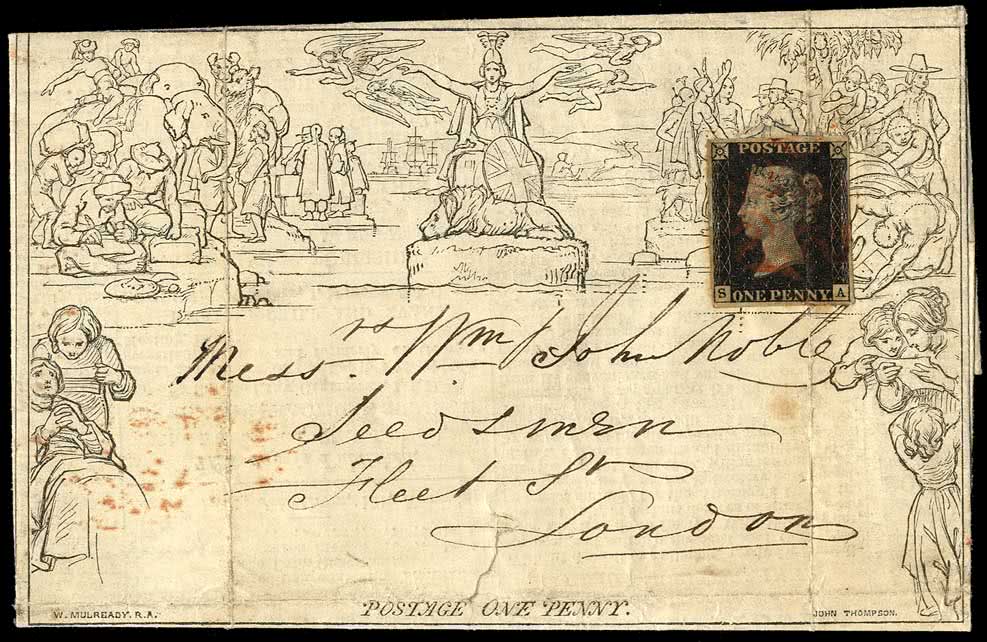 POSTAGE
S ONE PENNY A
Mess.rs Wm & John Noble
Seedsmen
Fleet St
London
POSTAGE ONE PENNY.
W. MULREADY. R.A.
JOHN THOMPSON.